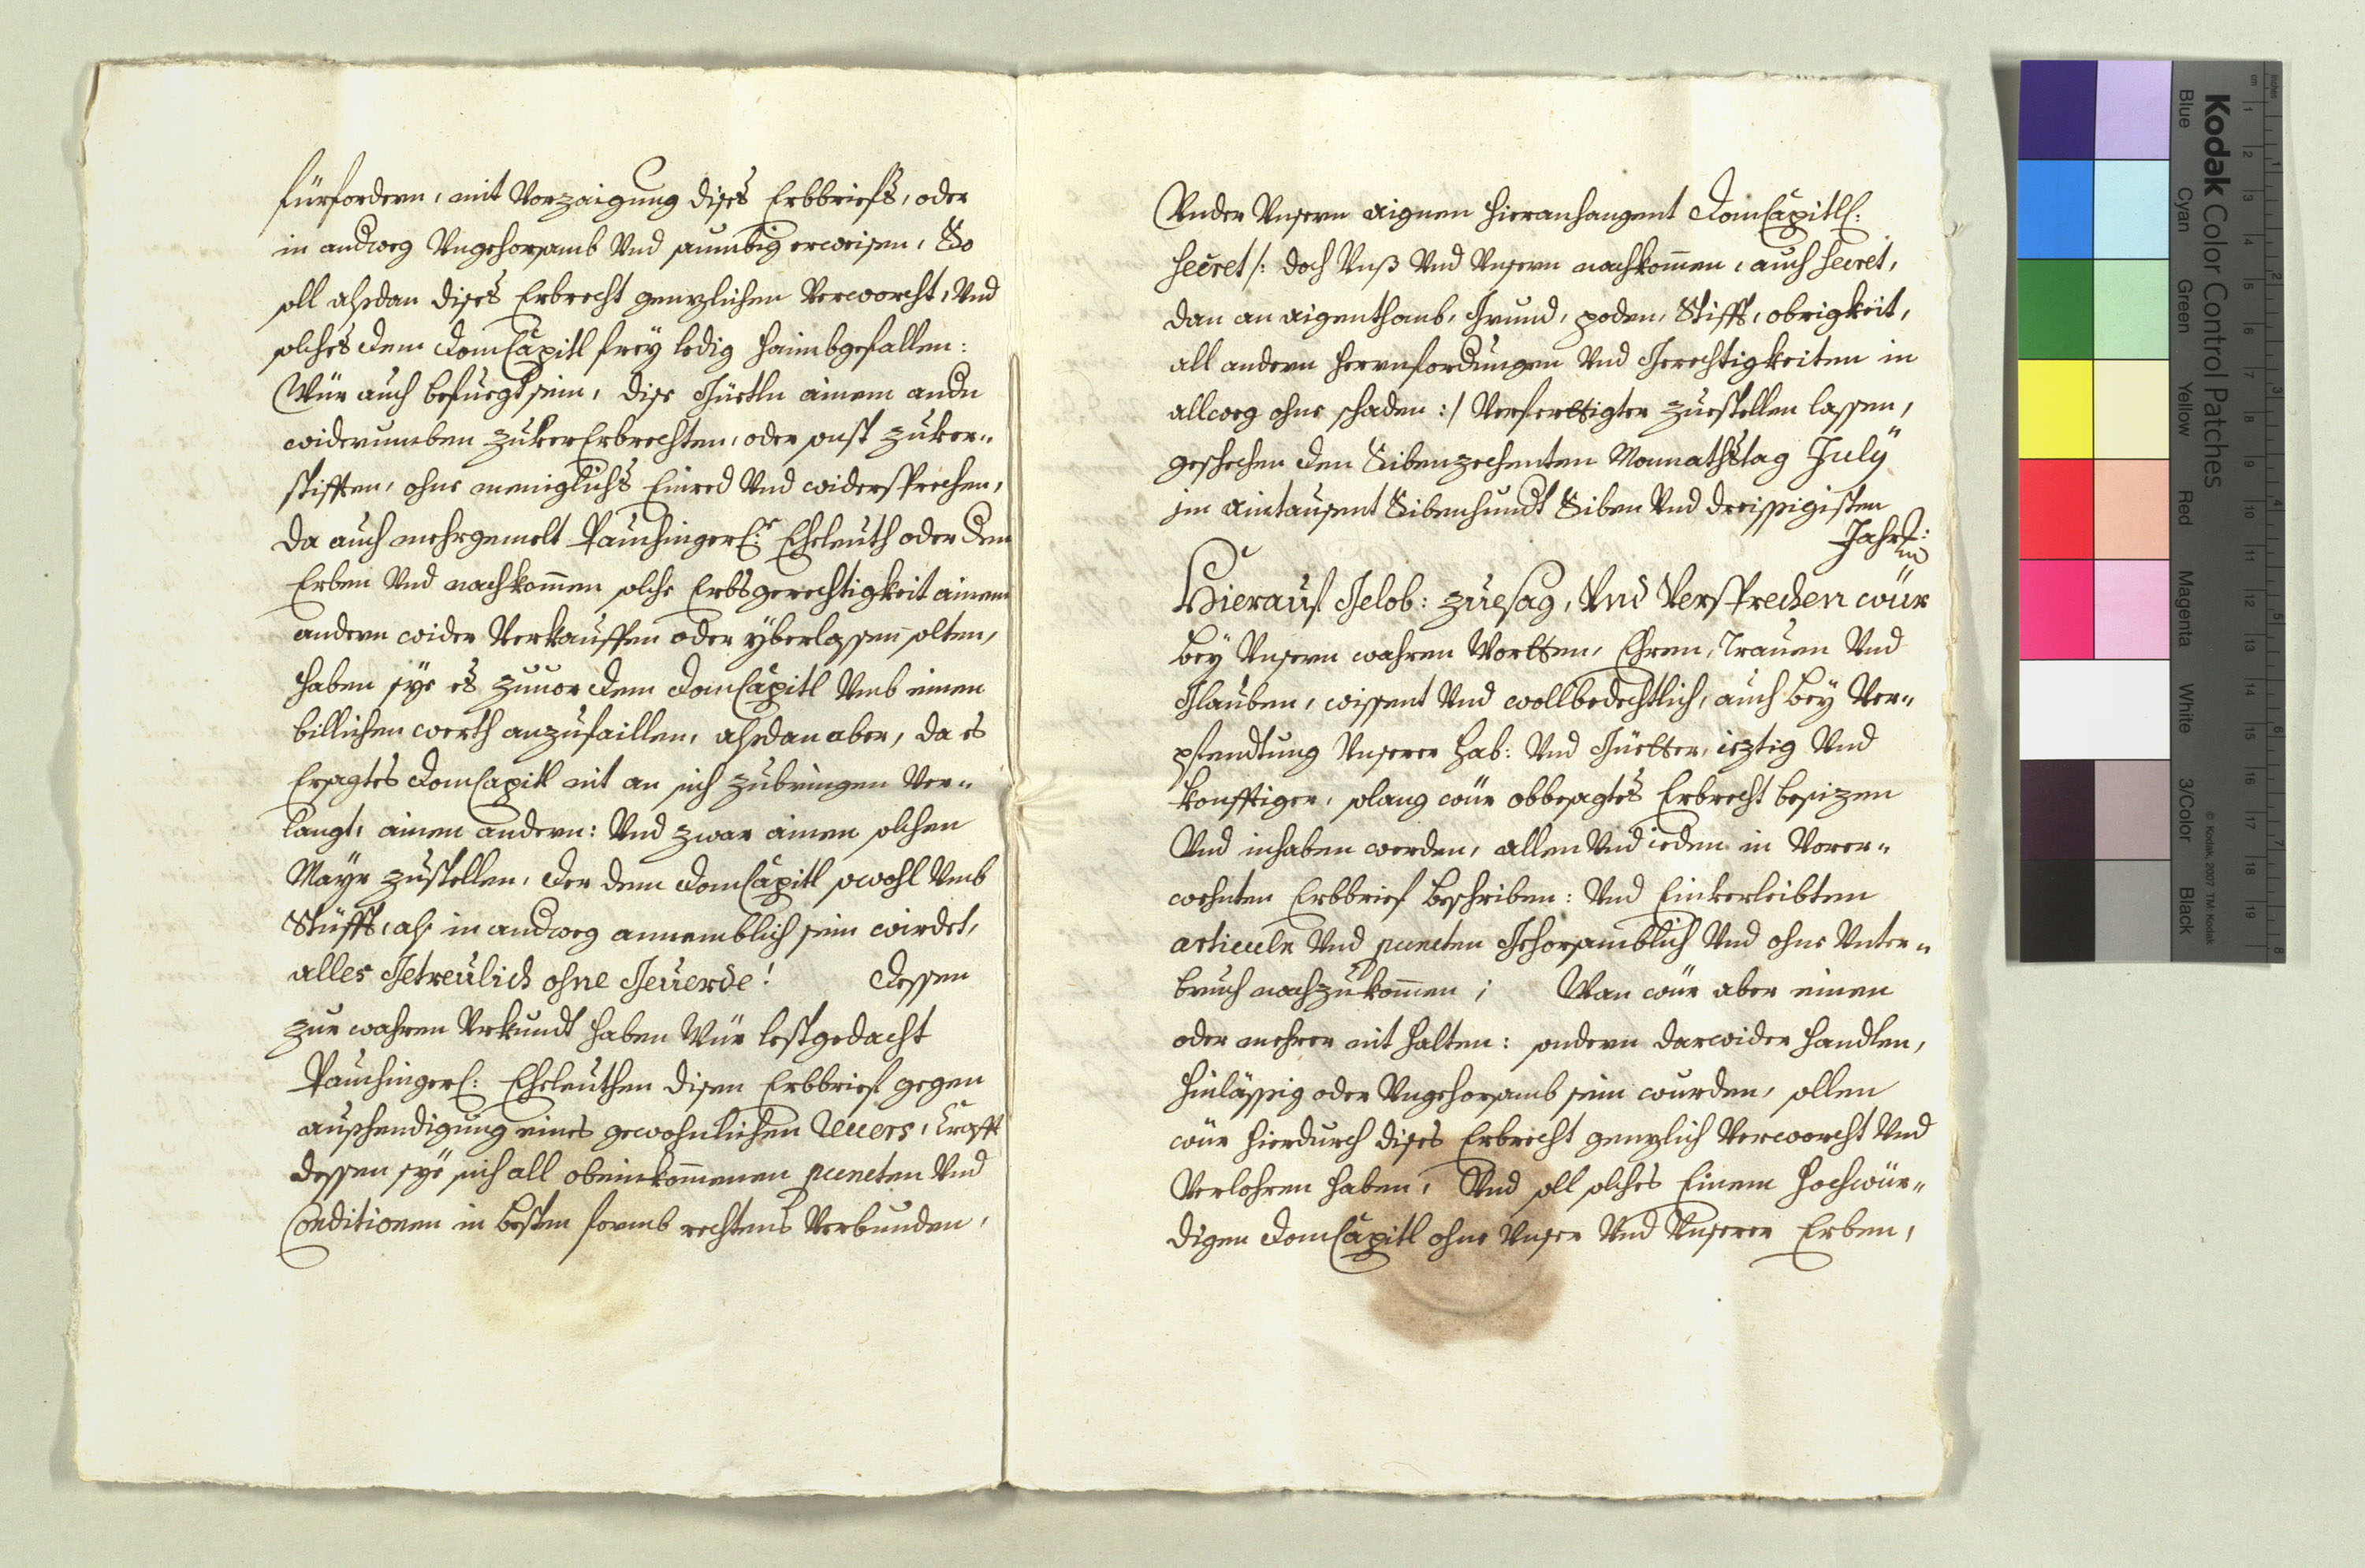 fürfordern, mit Vorzaigung dises Erbbriefs, oder
in andweg Vngehorsamb Vnd saumbig erweisen, So
soll alßdan dises Erbrecht genzlichen Verworcht, Vnd
solches dem DomCapitl frey ledig haimbgefallen:
Wür auch befuegt sein, dise Güetln ainem andn
widerumben zuuerErbrechten, oder sonst zuuer„
stifften, ohne meniglichs Einred Vnd widersprechen,
da auch mehrgemelt Pauchinger: Eheleuth oder dern
Erben Vnd nachkom̄en solche Erbsgerechtigkeit ainem
andern wider Verkauffen oder yberlassen solten,
haben sye es zuuor dem DomCapitl Vmb einen
billichen werth anzufaillen, alßdan aber, da es
Ersagtes DomCapitl nit an sich zubringen Ver„
langt, ainen andern: Vnd zwar ainen solchen
Mayr zustellen, der dem DomCapitl sowohl Vmb
Stüfft, alß in andweg annemblich sein wirdet,
alles Getreulich ohne Geuerde! Dessen
zur wahren Vrkundt haben Wür lestgedacht
Pauchinger: Eheleuthen disen Erbbrief gegen
außhendigung eines gewohnlichen Reuers, Crafft
dessen sye sich all obeinkom̄enen puncten Vnd
Conditionen in besten formb rechtens Verbunden,
Vnder Vnsern aignen hieranhangent DomCapitl:
Secret /: doch Vnß Vnd Vnsern nachkom̄en, auch Secret,
dan an aigenthomb, Grund, poden, Stifft, obrigkeit,
all andern herrnfordungen Vnd Gerechtigkeiten in
allweg ohne schaden :/ Verferttigter zuestellen lassen,
geschechen den Sibenzechenten Monnathstag July
im aintausent Sibenhundt Siben Vnd dreissigisten
Jahrs:
Hierauf Gelob: zuesag, Vnd Versprechen wür
bey Vnsern wahren Wortten, Ehren, Trauen Vnd
Glauben, wissent Vnd wollbedechtlich, auch bey Ver„
pfendtung Vnserer hab: Vnd Güetter, ieztig Vnd
konfftiger, solang wür obbesagtes Erbrecht besizen
Vnd inhaben werden, allen Vnd ieden in Vorer„
wehnten Erbbrief beschriben: Vnd Einuerleibten
articuln Vnd puncten Gehorsamblich Vnd ohne Vnter„
bruch nachzukom̄en; Wan wür aber einen
oder mehrer nit halten: sondern darwider handlen,
hinlässig oder Vngehorsamb sein wurden, sollen
wür hierdurch dises Erbrecht genzlich Verworcht Vnd
Verlohren haben, Vnd soll solches Einem Hochwür„
digen DomCapitl ohne Vnser Vnd Vnserer Erben,
Kodak Color Control Patches
Blue Cyan Green Yellow Red Magenta White 3/Color Black
© Kodak, 2007 TM Kodak
inches 1 2 3 4 5 6 7 8
cm 1 2 3 4 5 6 7 8 9 10 11 12 13 14 15 16 17 18 19